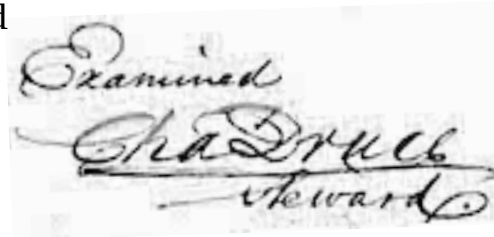 d
Examined
Cha Druce
Steward